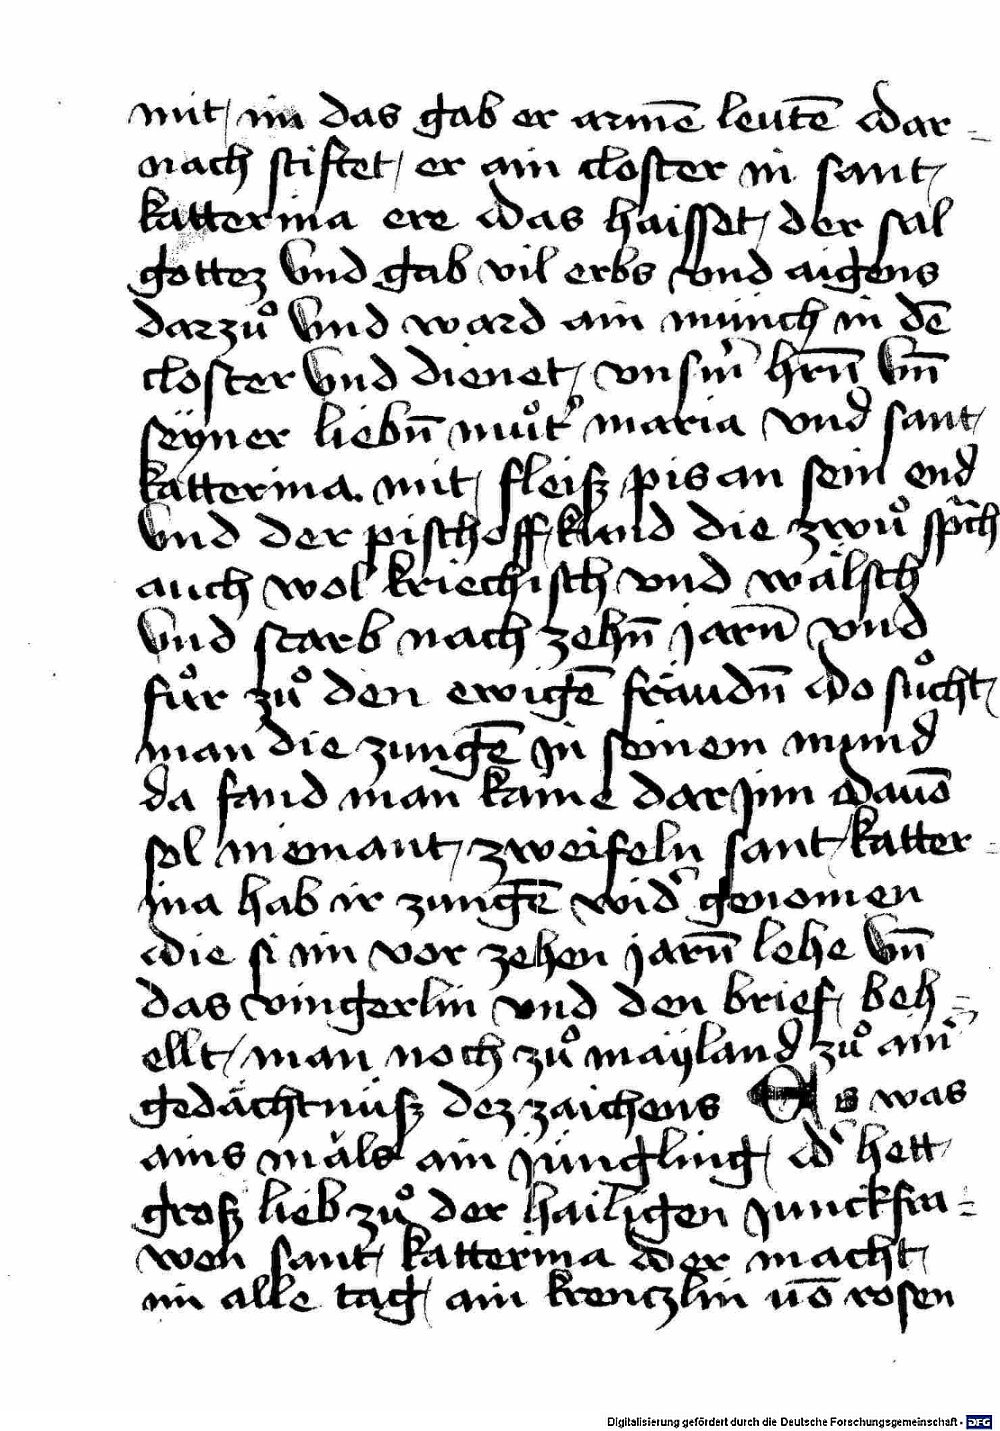 mit im das gab er armē leutē Dar=
nach stiftet er ain closter in sant
katterina ere Das haisset der sal
gottez Vnd gab vil erbs vnd aigens
darzuͦ Vnd ward ain münch in dē
closter Vnd dienet vnsm̄ hrn̄ Vn̄
seyner liebn̄ muͦt' maria vnd sant
katterina. mit fleisz pis an sein end
Vnd der pischoff kund die zwuͦ sprāch
auch wol kriechisch vnd wälsch
Vnd starb nach zehn̄ jarn̄ vnd
fuͦr zuͦ den ewigē fräudn̄ Do suͦcht
man die zungē jn seinem mund
da fand man kaine dar jnn Dauō
sol niemant zweifeln sant katter=
ina hab ir zungē wid' genomen
Die si im vor zehen jarn̄ lehe Vn̄
das vingerlin vnd den brief beh=
ellt man noch zuͦ mäyland zuͦ ain'
gedächtnüsz dez zaichens Es was
ains mäls ain jüngling D' hett
grosz lieb zuͦ der hailigen junckfra=
wen sant katterina Der macht
im alle tag ain krenczlin uō rosen
Digitalisierung gefördert durch die Deutsche Forschungsgemeinschaft - DFG